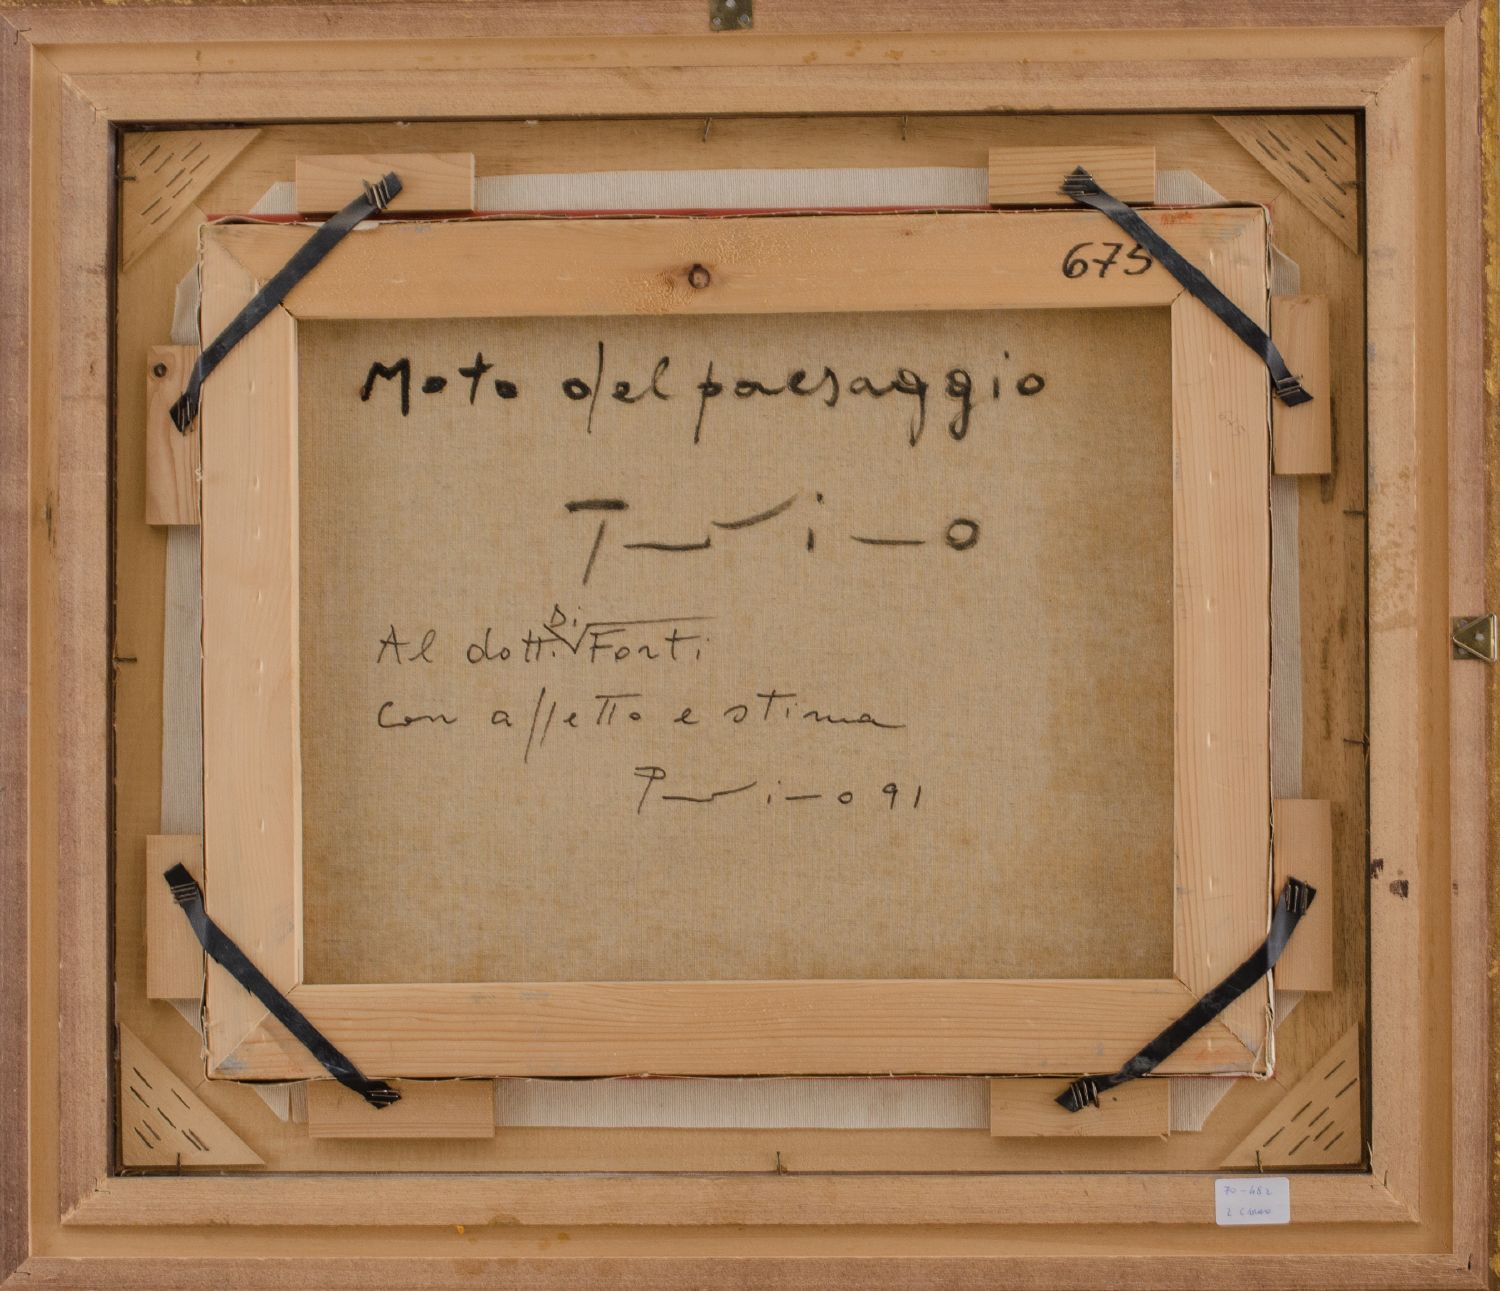 675
Moto del paesaggio
Al dott. Di Forti
con affetto e stima
91
70-482
2